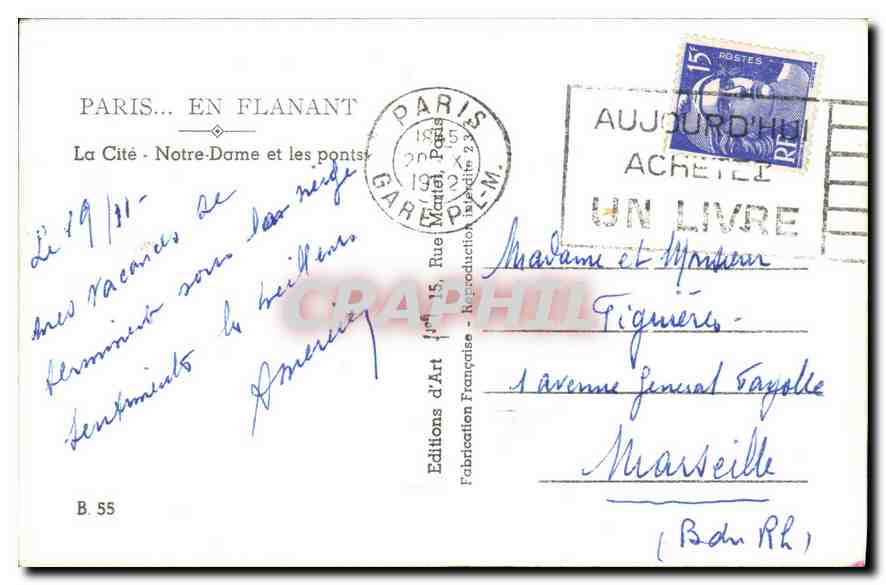 PARIS... EN FLANANT
La Cité - Notre-Dame et les ponts
Le 19/11-
mes vacances se
terminent sous la neige
sentiments les meilleurs
B. 55
Editions d'Art 15, Rue Martel, Paris
Fabrication Française - Reproduction interdite
PARIS
18 15
1952
GARE P.L.M.
15F
POSTES
RF
AUJOURD'HUI
ACHETEZ
UN LIVRE
Madame et Monsieur
Figuières
1 avenue General Fayolle
Marseille
(B du Rh)
CPAPHIL